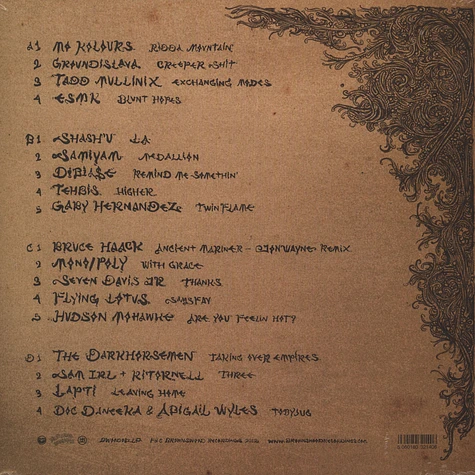 A1 MO KOLOURS RIDDA MOUNTAIN
2 GROUNDISLAVA CREEPER SHIT
3 TADD MULLINIX EXCHANGING MODES
4 ESMK BLUNT HOPES
B1 SHASH'U LA
2 SAMIYAM MEDALLION
3 DIBIA$E REMIND ME SOMETHIN'
4 TEHBIS HIGHER
5 GABY HERNANDEZ TWIN FLAME
C1 BRUCE HAACK ANCIENT MARINER - JONWAYNE REMIX
2 MONO/POLY WITH GRACE
3 SEVEN DAVIS JR THANKS
4 FLYING LOTUS
5 HUDSON MOHAWKE ARE YOU FEELIN HOT?
D1 THE DARKHORSEMEN TAKING OVER EMPIRES
2 SAM IRL + RITORNELL THREE
3 LAPTI LEAVING HOME
4 DOC DANEEKA & ABIGAIL WYLES TOBYJUG